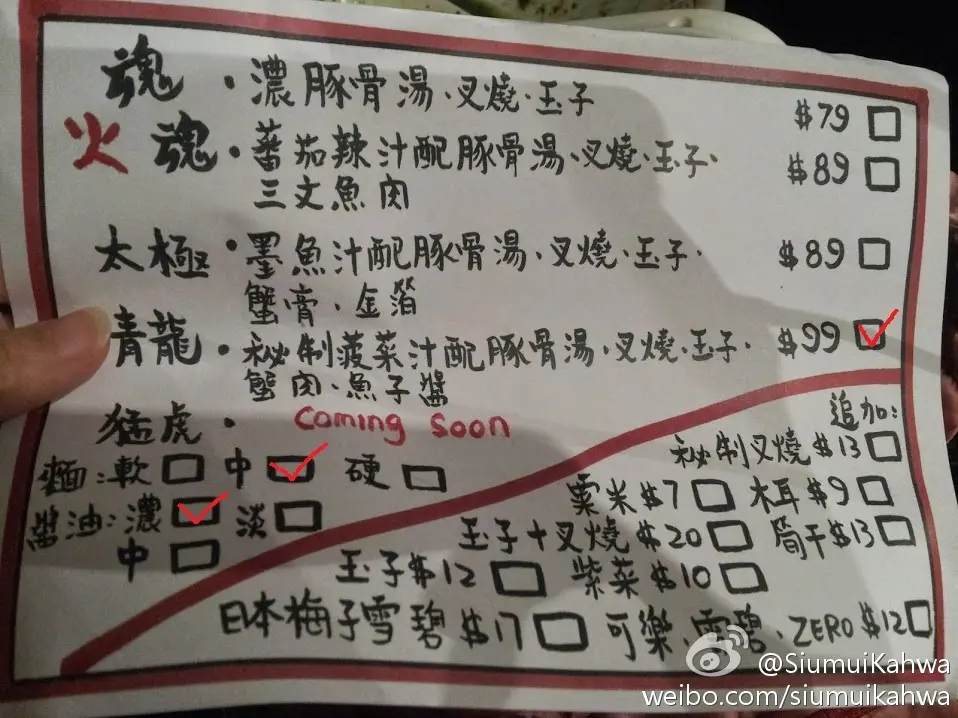 魂・濃豚骨湯・叉燒・玉子 $79
火魂・蕃茄辣汁配豚骨湯・叉燒・玉子・ $89
三文魚肉
太極・墨魚汁配豚骨湯・叉燒・玉子・ $89
蟹膏・金箔
青龍・秘制菠菜汁配豚骨湯・叉燒・玉子・ $99
蟹肉・魚子醬
猛虎・ Coming Soon
追加:
秘制叉燒 $13
麵:軟 中 硬
粟米 $7 木耳 $9
醬油:濃 淡
玉子+叉燒 $20 筍干 $13
中
玉子 $12 紫菜 $10
日本梅子雪碧 $17 可樂、雪碧、ZERO $12
@SiumuiKahwa
weibo.com/siumuikahwa